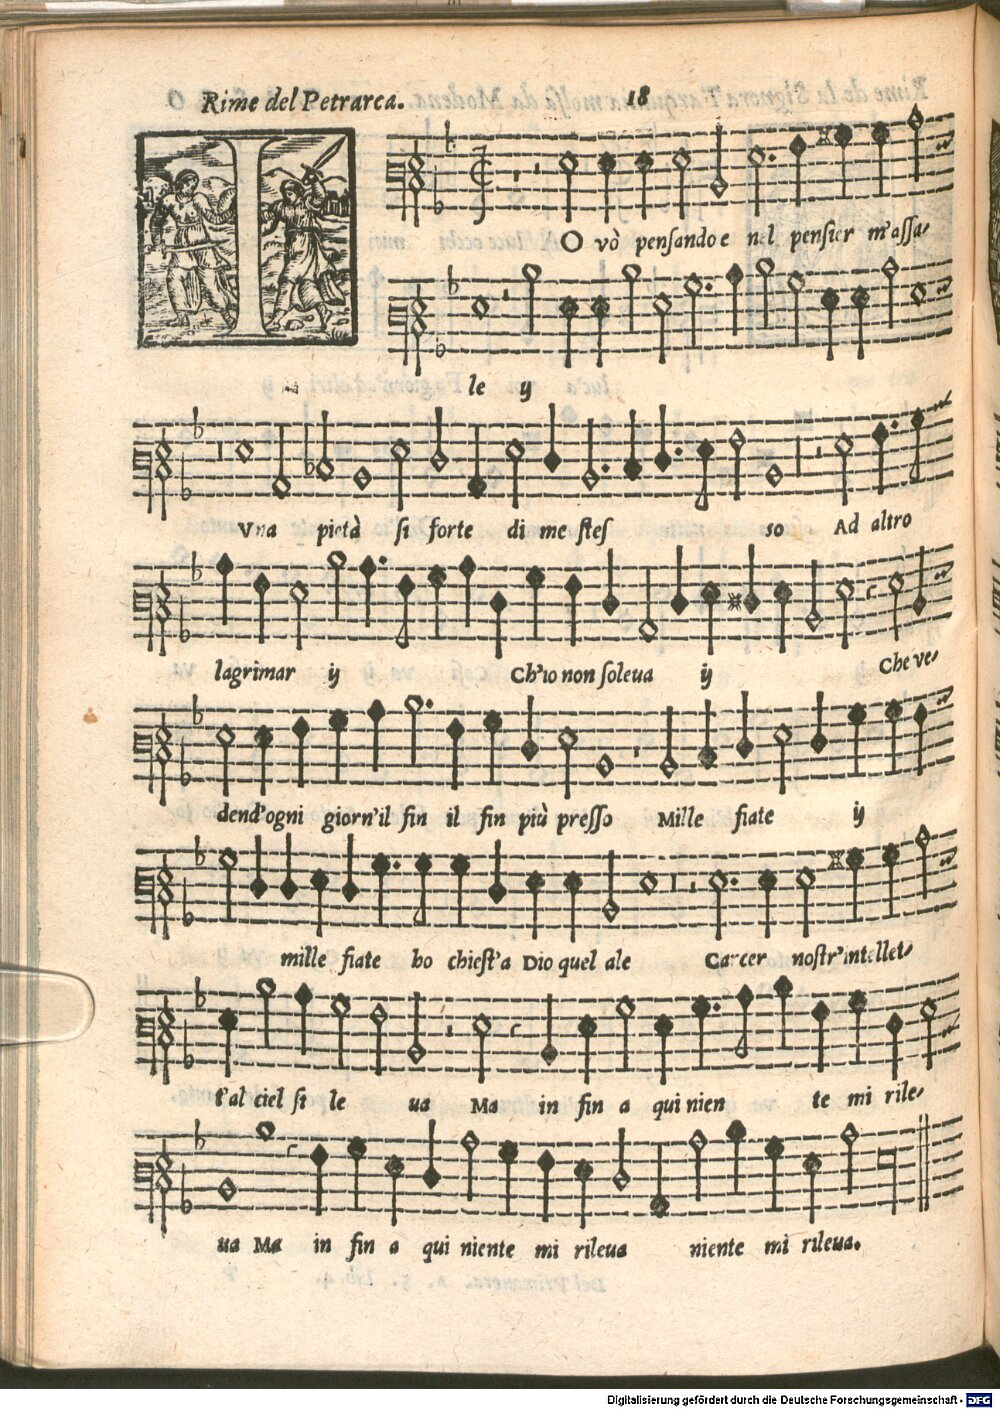 Rime del Petrarca. 18
I O vò pensando e nel pensier m'assa-
le ij
Vna pietà si forte di me stes so Ad altro
lagrimar ij Ch'io non soleua ij Che ve-
dend'ogni giorn'il fin il fin più presso Mille fiate ij
mille fiate ho chiest'a Dio quel ale Carcer nostr'intellet-
t'al ciel si le ua Ma in fin a qui nien te mi rile-
ua Ma in fin a qui niente mi rileua niente mi rileua.
Digitalisierung gefördert durch die Deutsche Forschungsgemeinschaft - DFG